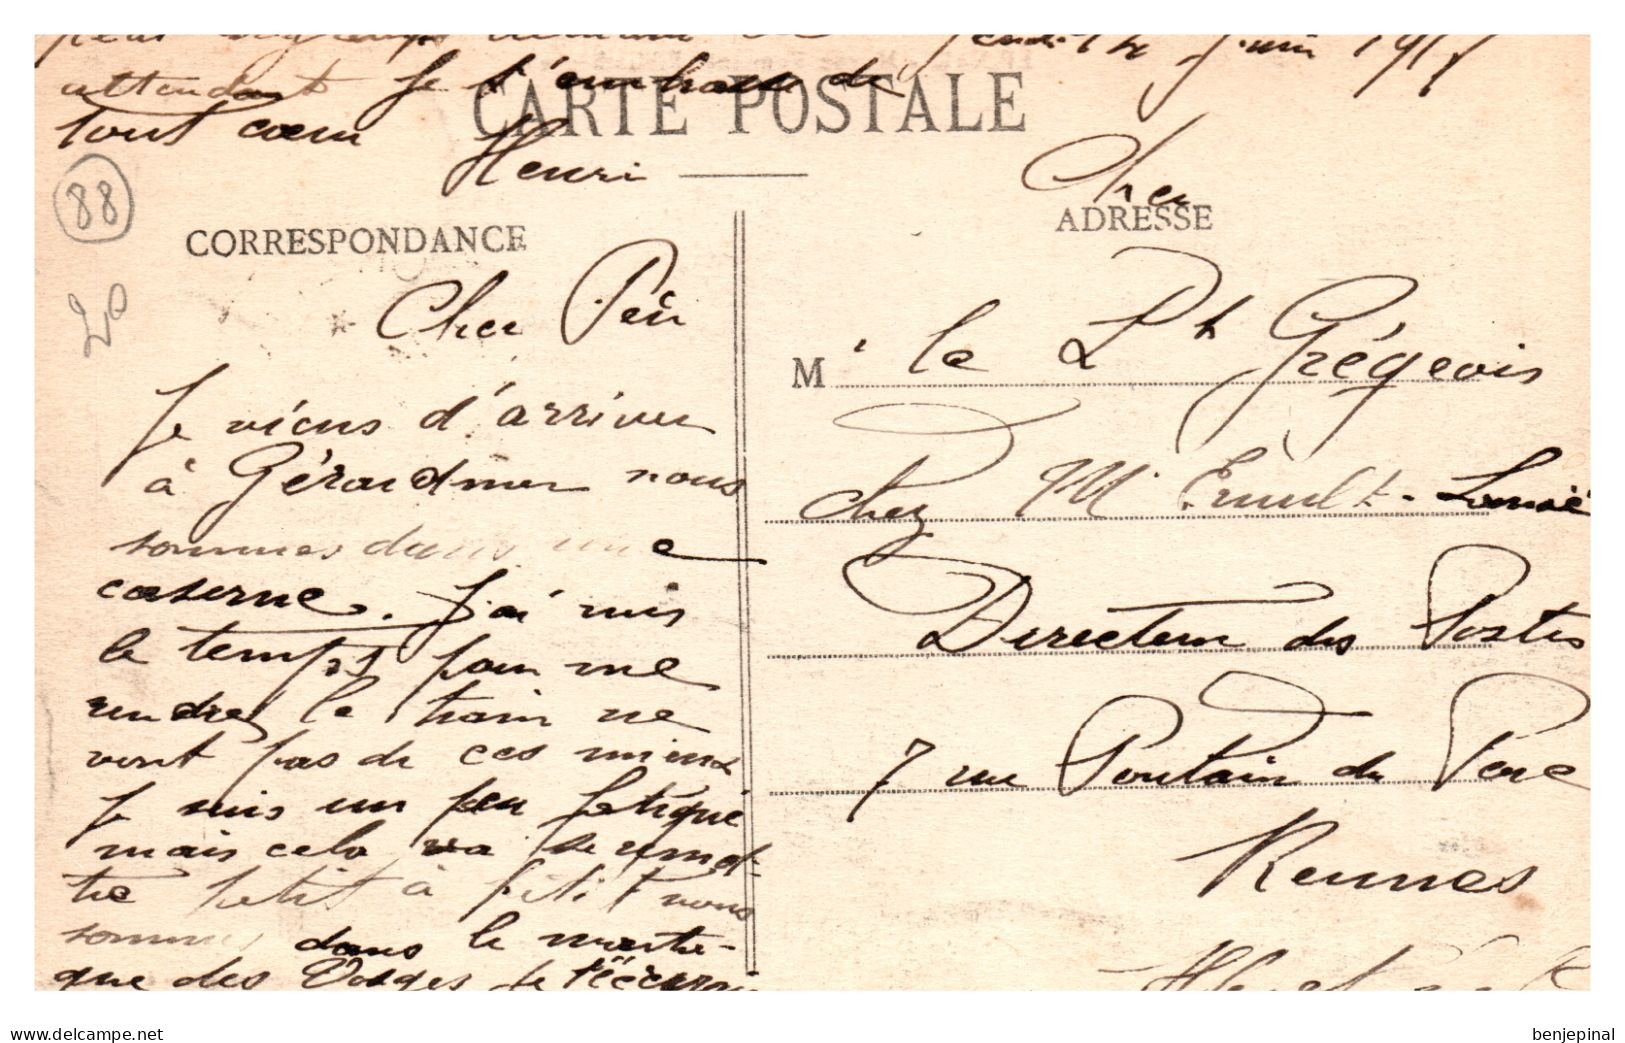 attendant je t'embrasse de
tout cœur Henri
Jeudi 14 Juin 1917
CARTE POSTALE
88
20
CORRESPONDANCE
ADRESSE
Cher
Cher Père
Je viens d'arriver
à Gérardmer nous
sommes dans une
caserne. J'ai mis
le temps pour me
rendre le train ne
vont pas de ces mieux
Je suis un peu fatigué
mais cela va se remet-
tre petit à petit nous
sommes dans le
que des Vosges
M r le Lt Grégeois
chez Mr
Directeur des Postes
7 rue Pontain du Père
Rennes
www.delcampe.net
benjepinal